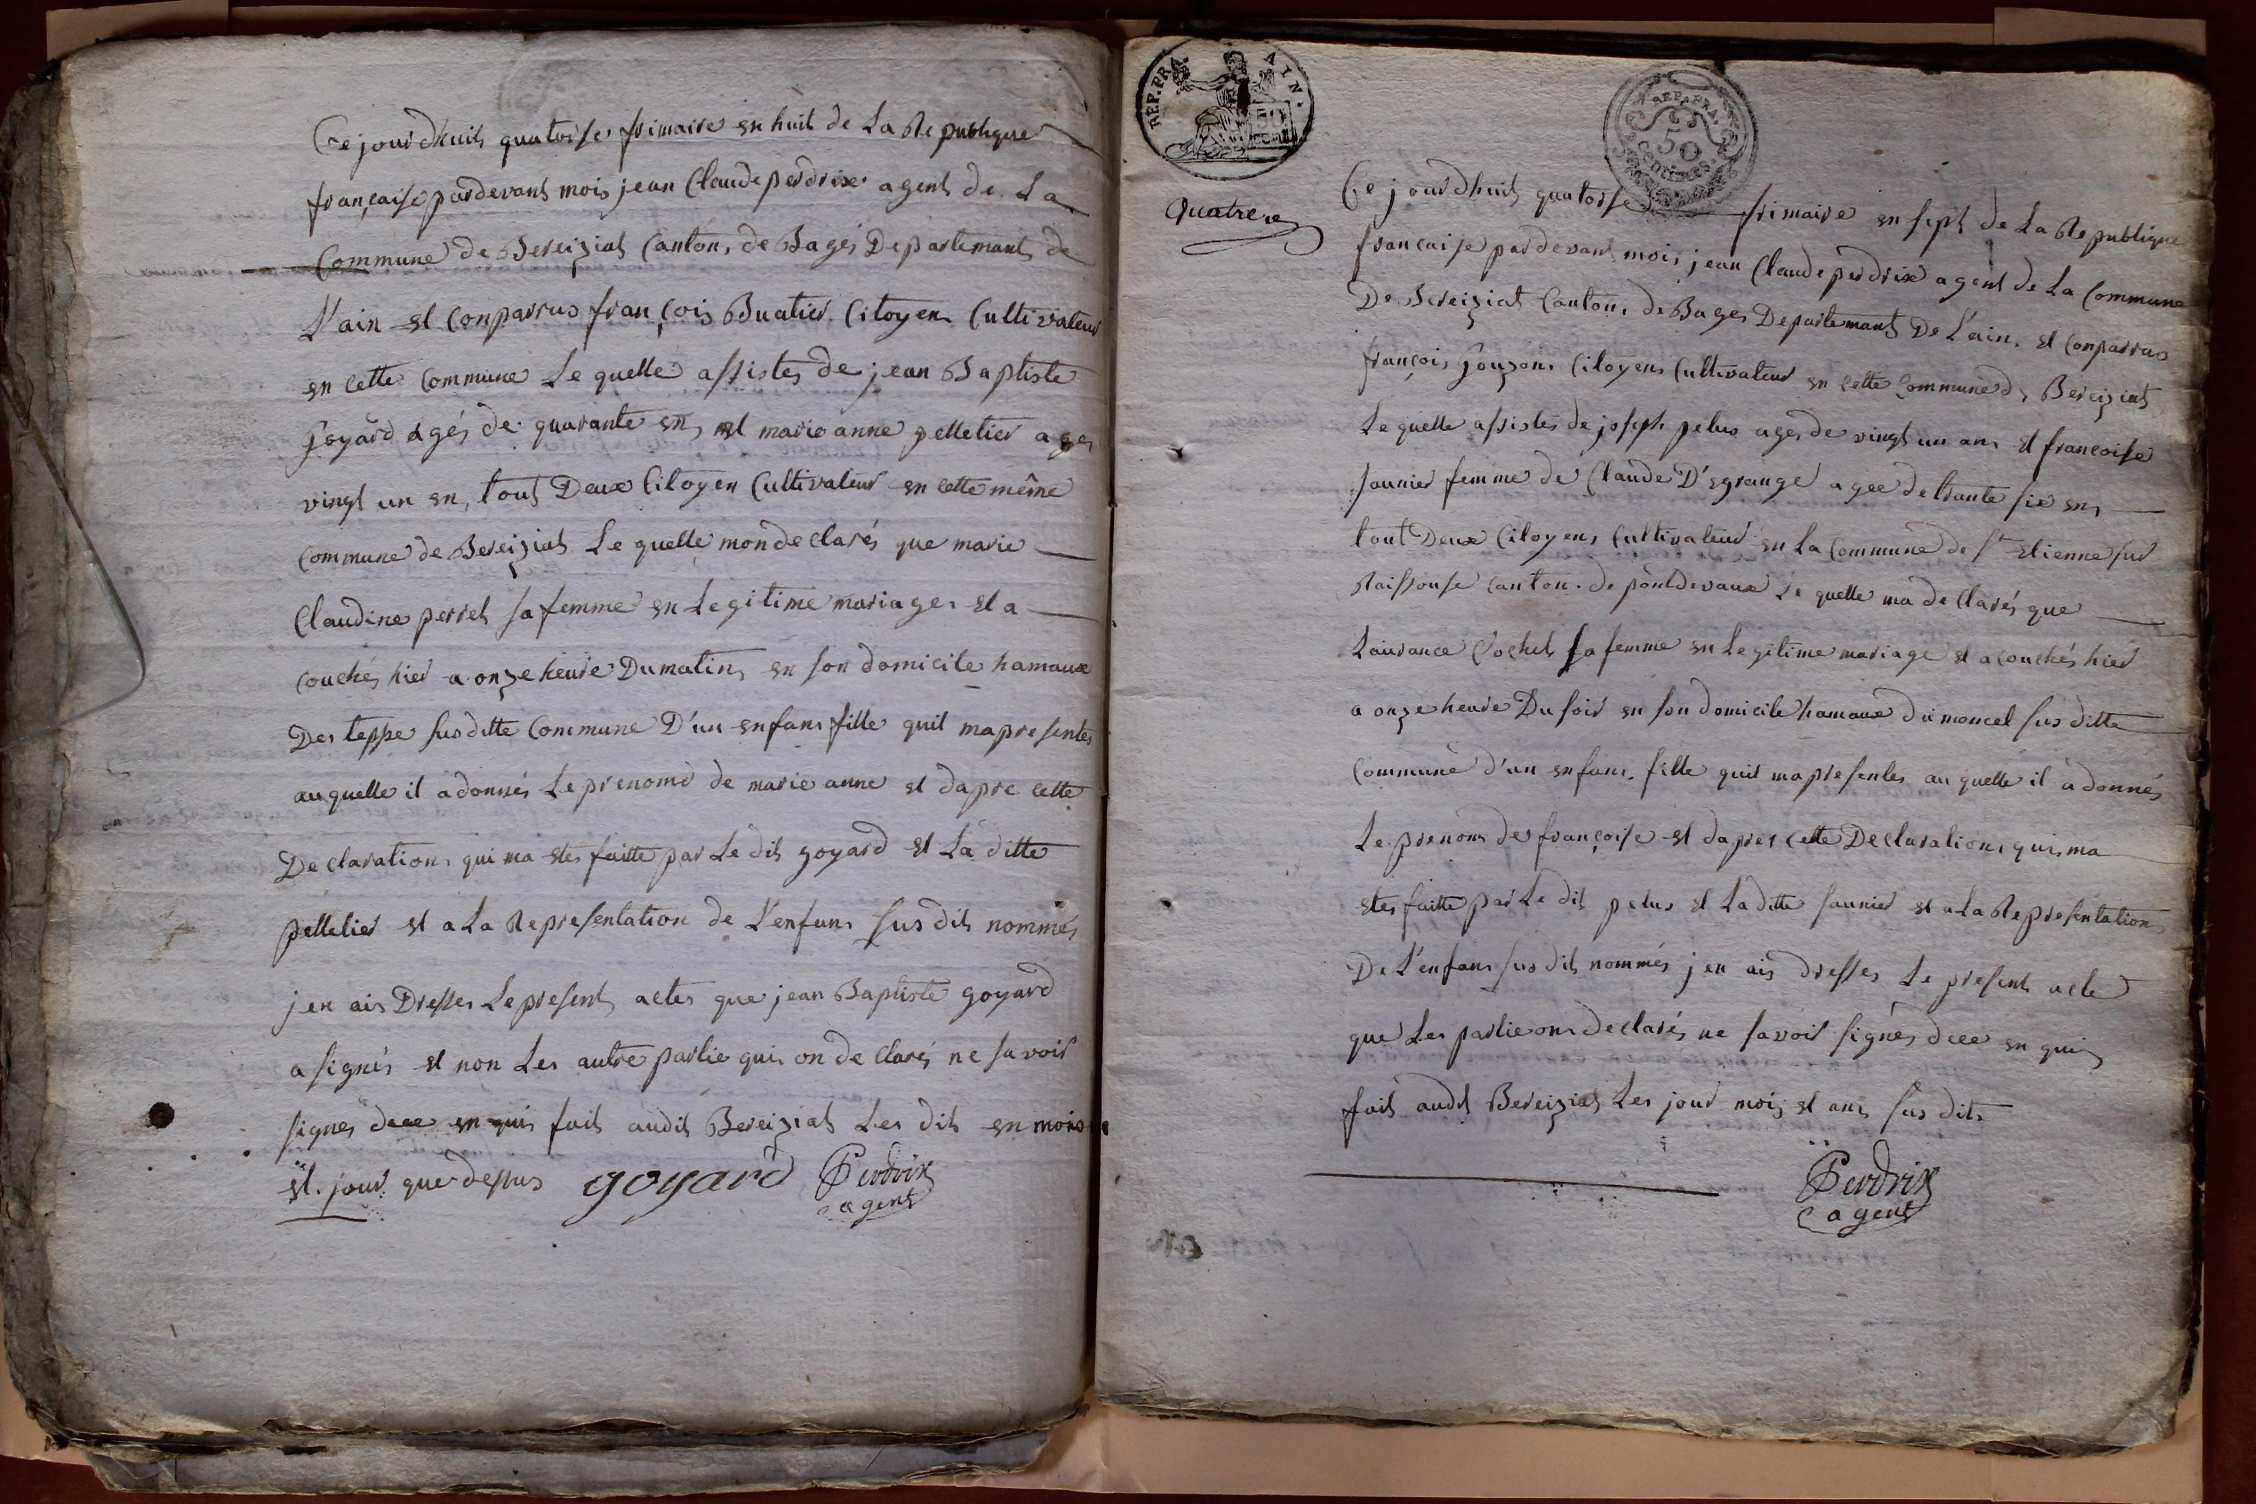 Ce jourdhuit quatorse frimaire en huit de La Republique
française pardevant mois jean Claude perdrix agent de La
Commune de Bereiziat Canton de Bagés Departemant de
L'ain est conparrus françois Buatier Citoyen Cultivateur
en cette commune Le quelle assistes de jean Baptiste
Goyard agés de quarante en, et marie anne pelletier ages
vingt un en, tout Deux Citoyen Cultivateur en cette même
commune de Bereiziat Le quelle mondeclarés que marie
Claudine perret sa femme en Legitime mariage et a
couchés hier a onze heure Du matin en son domicile hamaux
Des teppe susditte commune D'un enfans fille quil mapresentes
auquelle il a donnés Le prenomd de marie anne et dapre cette
Declaration qui ma etes faitte par Le dit goyard et La ditte
pelletier et a La Representation de L'enfans sus dit nommés
jen ais Dresses Le present actes que jean Baptiste goyard
a signés et non Les autre partie qui on declarés ne savoir
signes deee en quis fait audit Bereiziat Les dit en mois
et jour que dessus goyard Perdrix
agent
REP. FRA. AIN.
50 CENT
REP. FRA.
50
centimes
Quatre
Ce jourdhuit quatorse frimaire en sept de La Republique
française pardevant mois jean Claude perdrix agent de La Commune
De Bereiziat Canton de Bages Departemant De L'ain et conparrus
françois Gouzon Citoyens Cultivateur en cette Commune de Bereiziat
Le quelle assistes de joseph pelus ages de vingt un ans et françoise
saunier femme de Claude D'egrange agee de trante six ens
tout Deux Citoyens Cultivateur en La Commune de St Etienne sur
Raissouse canton de pontdevaux Le quelle ma declarés que
Laurance Cochet sa femme en Legitime mariage et acouchés hier
a onze heure Du soir en son domicile hamaux du moncel sus ditte
Commune d'un enfans fille quil mapresentes au quelle il a donnés
Le prenoms de françoise et dapres cette Declaration quis ma
etes faitte par Le dit pelus et La ditte saunier et a La Representation
De L'enfans sus dit nommés jen ais dresses Le present acte
que Les partie ons declarés ne savoir signés deee en quis
fait audit Bereiziat Les jour mois et ans sus dits
Perdrix
agent